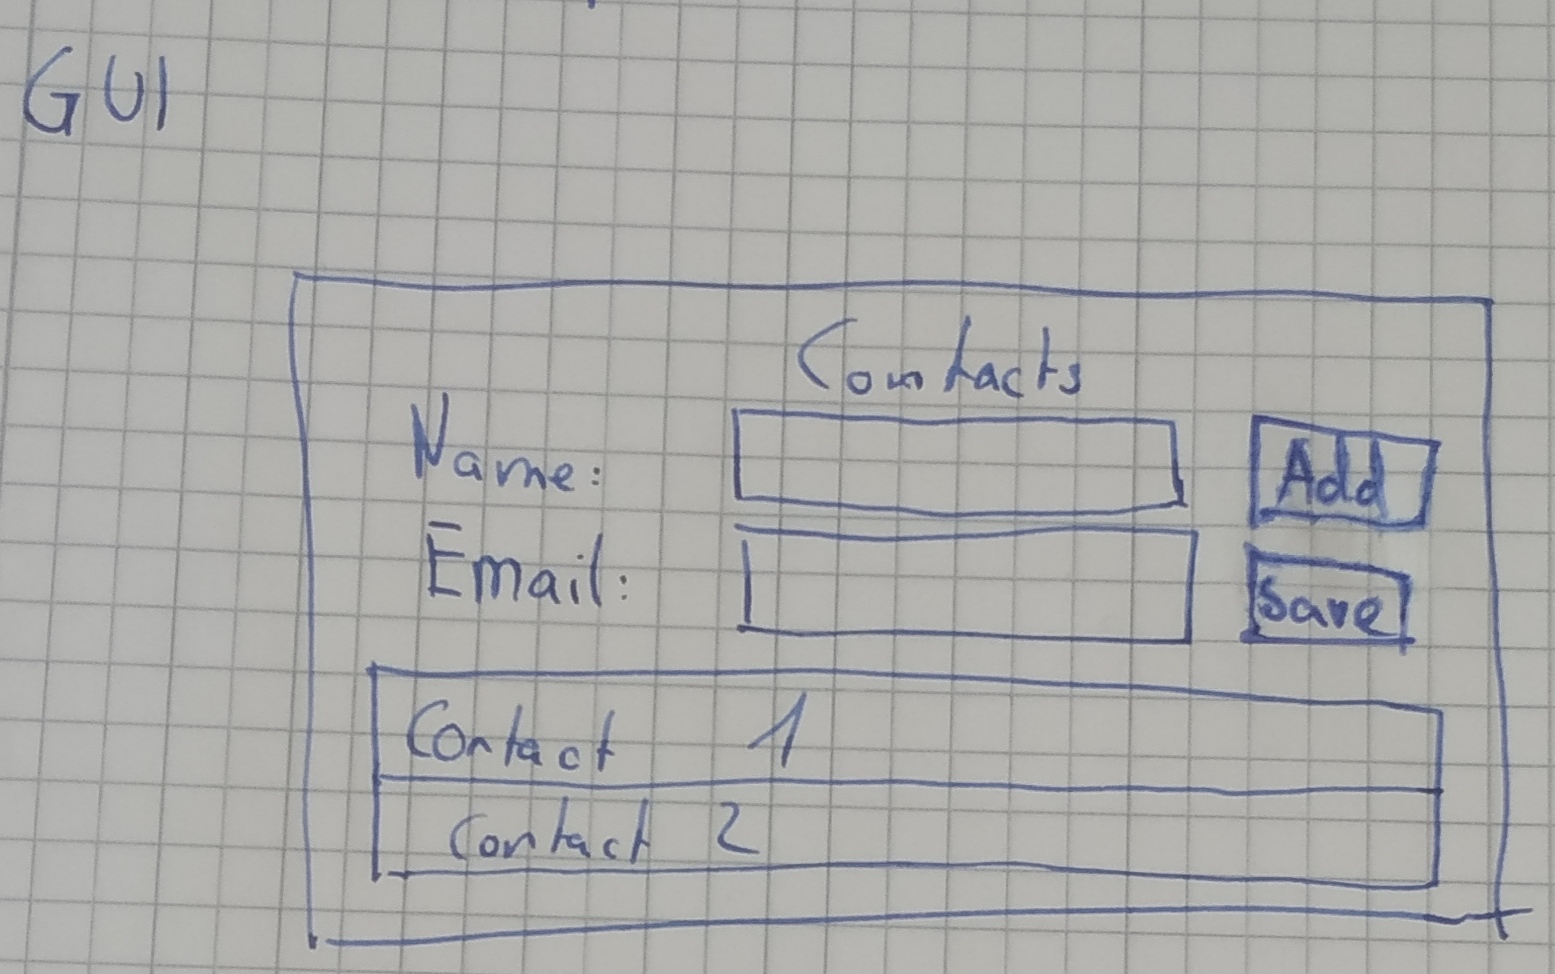 GUI
Contacts
Name: Add
Email: Save
Contact 1
Contact 2